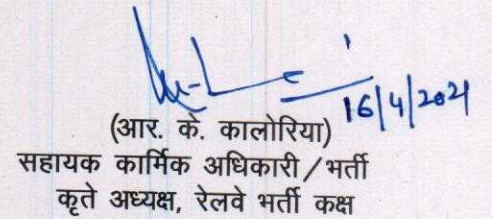 16/4/2021
(आर. के. कालोरिया)
सहायक कार्मिक अधिकारी/भर्ती
कृते अध्यक्ष, रेलवे भर्ती कक्ष